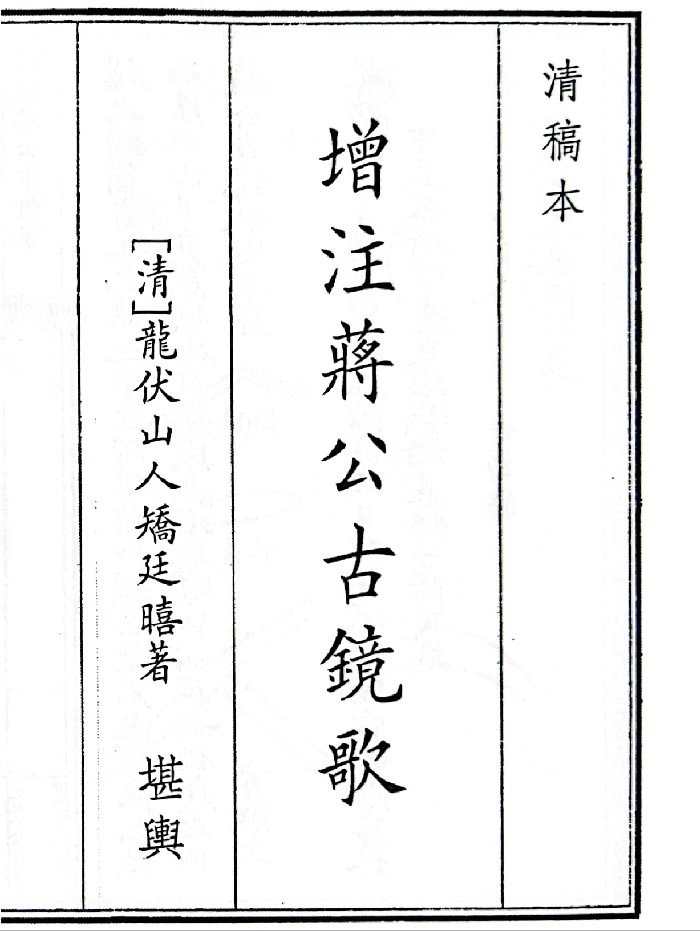 清稿本
增注蔣公古鏡歌
[清]龍伏山人矯廷暿著 堪輿